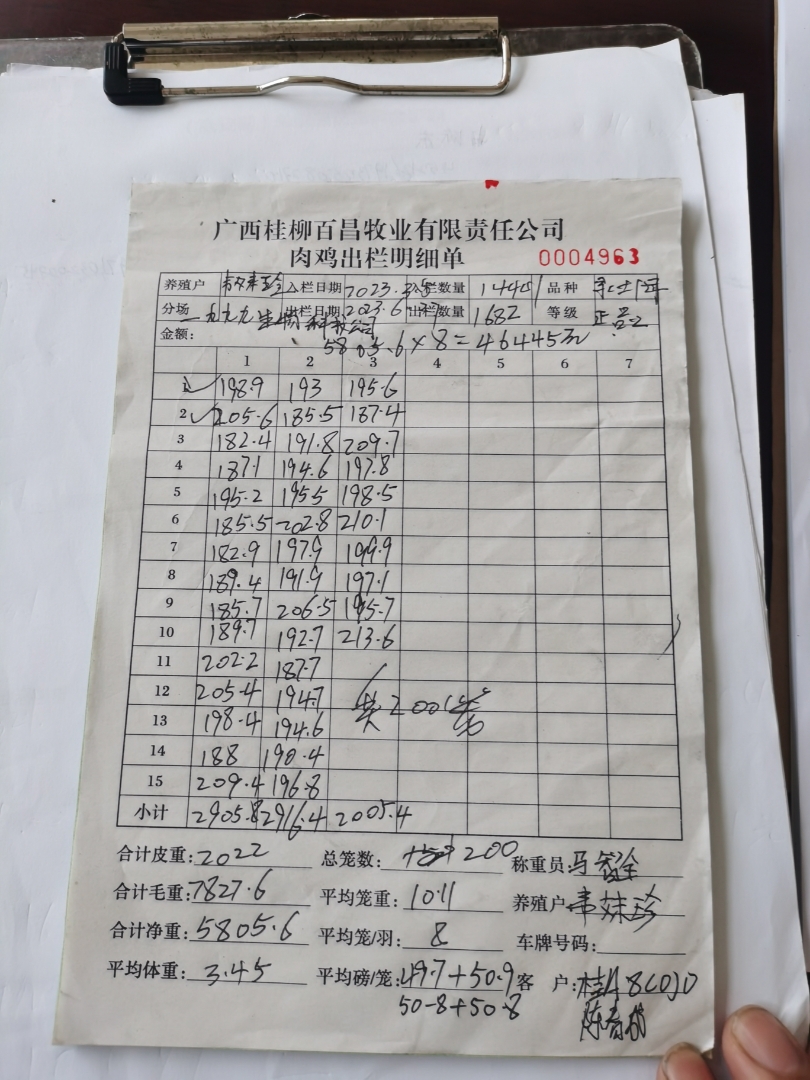 广西桂柳百昌牧业有限责任公司
肉鸡出栏明细单 0004963
养殖户 入栏日期 2023. 入栏数量 1440 品种
分场 一九九九生物科技公司 出栏日期 2023.6. 出栏数量 1682 等级 正品
金额: 5805.6×8=46445元
1 2 3 4 5 6 7
1 198.9 193 195.6
2 205.6 185.5 187.4
3 182.4 191.8 209.7
4 187.1 194.6 197.8
5 195.2 195.5 198.5
6 185.5 202.8 210.1
7 182.9 197.9 199.9
8 189.4 191.9 197.1
9 185.7 206.5 195.7
10 189.7 192.7 213.6
11 202.2 187.7
12 205.4 194.7
13 198.4 194.6 共200笼
14 188 190.4
15 209.4 196.8
小计 2905.8 2916.4 2005.4
合计皮重: 2022 总笼数: 200 称重员: 马
合计毛重: 7827.6 平均笼重: 10.11 养殖户: 韦妹珍
合计净重: 5805.6 平均笼/羽: 8 车牌号码:
平均体重: 3.45 平均磅/笼: 49.7+50.9 客 户:
50.8+50.8